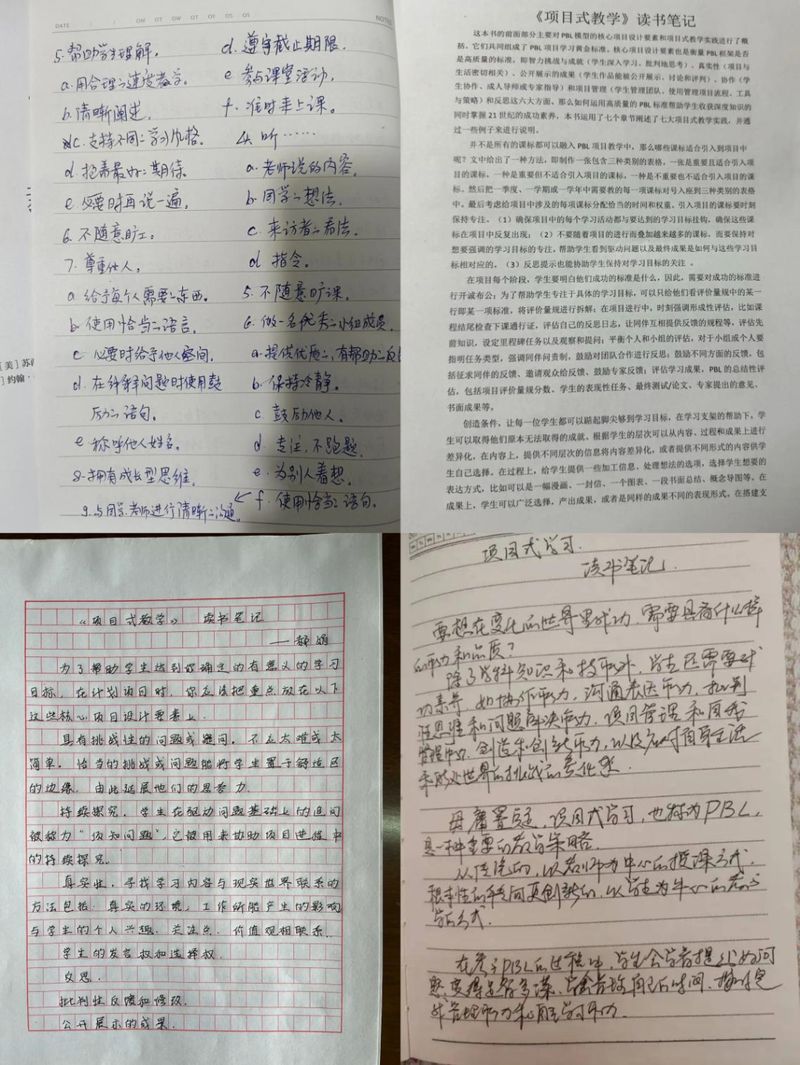 DATE
5. 帮助学生理解.
a. 用合理的速度教学.
b. 清晰阐述.
c. 支持不同的学习风格.
d. 抱着最好的期待.
e. 必要时再说一遍.
6. 不随意旷工.
7. 尊重他人.
a. 给予每个人需要的东西.
b. 使用恰当的语言.
c. 必要时给予他人空间.
d. 在纠错问题时使用鼓
励的语句.
e. 称呼他人姓名.
8. 拥有成长型思维.
9. 与同学、老师进行清晰的沟通.
d. 遵守截止期限.
e. 参与课堂活动.
f. 准时来上课.
4. 听……
a. 老师说的内容.
b. 同学的想法.
c. 来访者的看法.
d. 指令.
5. 不随意旷课.
6. 做一名优秀的小组成员.
a. 提供优质的、有帮助的反
b. 保持冷静.
c. 鼓励他人.
d. 专注,不跑题.
e. 为别人着想.
f. 使用恰当的语句.
[美] 苏
约翰·
《项目式教学》读书笔记
这本书的前面部分主要对 PBL 模型的核心项目设计要素和项目式教学实践进行了概
括。它们共同组成了 PBL 项目学习黄金标准。核心项目设计要素也是衡量 PBL 框架是否
是高质量的标准,即智力挑战与成就(学生深入学习、批判地思考)、真实性(项目与
生活密切相关)、公开展示的成果(学生作品能被公开展示、讨论和评判)、协作(学
生协作、成人导师或专家指导)和项目管理(学生管理团队、使用管理项目流程、工具
与策略)和反思这六大方面。那么如何运用高质量的 PBL 标准帮助学生收获深度知识的
同时掌握 21 世纪的成功素养,本书运用了七个章节阐述了七大项目式教学实践,并通
过一些例子来进行说明。
并不是所有的课标都可以融入 PBL 项目教学中,那么哪些课标适合引入到项目中
呢?文中给出了一种方法,即制作一张包含三种类别的表格,一张是重要且适合引入项
目的课标,一种是重要但不适合引入项目的课标,一种是不重要也不适合引入项目的课
标。然后把一季度、一学期或一学年中需要教的每一项课标对号入座到三种类别的表格
中。最后考虑给项目中涉及的每项课标分配恰当的时间和权重。引入项目的课标要时刻
保持专注。(1)确保项目中的每个学习活动都与要达到的学习目标挂钩,确保这些课
标在项目中反复出现;(2)不要随着项目的进行而叠加越来越多的课标,而要保持对
想要强调的学习目标的专注,帮助学生看到驱动问题以及最终成果是如何与这些学习目
标相对应的。(3)反思提示也能协助学生保持对学习目标的关注 。
在项目每个阶段,学生要明白他们成功的标准是什么,因此,需要对成功的标准进
行开诚布公;为了帮助学生专注于具体的学习目标,可以只给他们看评价量规中的某一
行即某一项标准,将评价量规进行拆解;在项目进行中,时刻强调形成性评价,比如课
程结尾检查下课通行证,评估自己的反思日志,让同伴互相提供反馈的规程等,评估先
前知识,设定里程碑任务以及观察和提问;平衡个人和小组的评估,对于小组成个人要
指明任务类型,强调同伴问责制,鼓励对团队合作进行反思;鼓励不同方面的反馈,包
括征求同伴的反馈、邀请观众给反馈、鼓励专家反馈;评估学习成果,PBL 的总结性评
估,包括项目评价量规分数、学生的表现性任务、最终测试/论文、专家提出的意见、
书面成果等。
创造条件,让每一位学生都可以踮起脚尖够到学习目标,在学习支架的帮助下,学
生可以取得他们原本无法取得的成就。根据学生的层次可以从内容、过程和成果上进行
差异化。在内容上,提供不同层次的信息将内容差异化,或者提供不同形式的内容供学
生自己选择。在过程上,给学生提供一些加工信息、处理想法的选项,选择学生想要的
表达方式,比如可以是一幅漫画、一封信、一个图表、一段书面总结、概念导图等。在
成果上,学生可以广泛选择,产出成果,或者是同样的成果不同的表现形式。在搭建支
《项目式教学》 读书笔记
为了帮助学生达到你确定的有意义的学习
目标,在计划项目时,你应该把重点放在以下
这些核心项目设计要素上.
具有挑战性的问题或疑问。不应太难或太
简单。恰当的挑战或问题能将学生置于舒适区
的边缘,由此延展他们的思考力.
持续探究。学生在驱动问题基础上的追问
被称为“须知问题”,它被用来协助项目进程中
的持续探究.
真实性。寻找学习内容与现实世界联系的
方法包括:真实的环境、工作所能产生的影响
与学生的个人兴趣、关注点、价值观相联系.
学生的发言权和选择权.
反思.
批判性反馈和修改.
公开展示的成果.
项目式学习.
读书笔记1.
要想在变化的世界里成功,需要具备什么样
的能力和品质?
除了学科知识和技能外,学生还需要成
功素养,如协作能力,沟通表达能力,批判
性思维和问题解决能力,项目管理和自我
管理能力,创造和创新能力,以及应对自身生活
毋庸置疑,项目式学习,也称为PBL,
是一种重要的教学策略.
从传统的,以教师为中心的授课方式,
根本性的转向更创新的,以学生为中心的教
学方式.
在参与PBL的过程中,学生会学着提出好的问